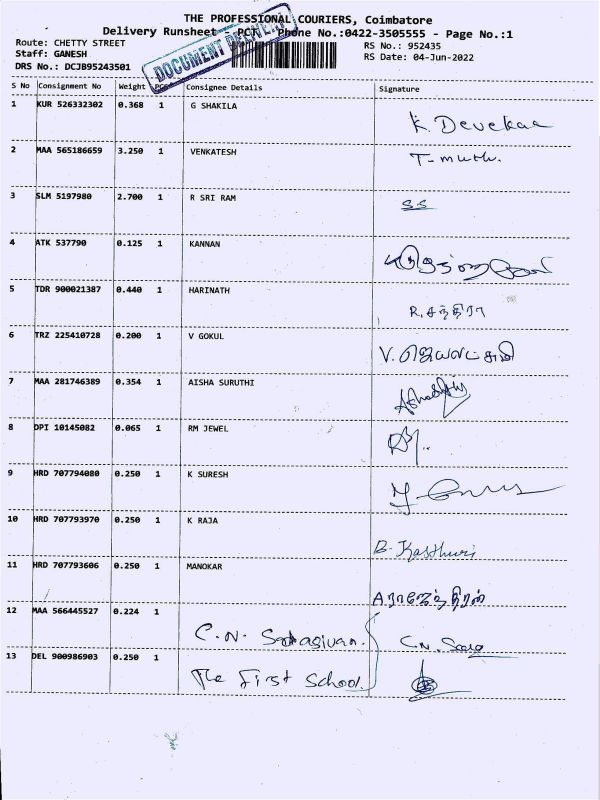 THE PROFESSIONAL COURIERS, Coimbatore
Delivery Runsheet - PCT Phone No.:0422-3505555 - Page No.:1
Route: CHETTY STREET
RS No.: 952435
Staff: GANESH
RS Date: 04-Jun-2022
DRS No.: DCJB95243501
DOCUMENT DELIVERY
S No Consignment No Weight PCS Consignee Details Signature
1 KUR 526332302 0.368 1 G SHAKILA K. Devekaa
2 MAA 565186659 3.250 1 VENKATESH T-muth.
3 SLM 5197980 2.700 1 R SRI RAM SS
4 ATK 537790 0.125 1 KANNAN
5 TDR 900021387 0.440 1 HARINATH R. சந்திரா
6 TRZ 225410728 0.200 1 V GOKUL V. ஜெயலட்சுமி
7 MAA 281746389 0.354 1 AISHA SURUTHI
8 DPI 10145082 0.065 1 RM JEWEL
9 HRD 707794080 0.250 1 K SURESH
10 HRD 707793970 0.250 1 K RAJA B. Kasthuri
11 HRD 707793606 0.250 1 MANOKAR A ராஜேந்திரன்
12 MAA 566445527 0.224 1 C.N. Sadhasivan. C.N. Sada
13 DEL 900986903 0.250 1 The First School.